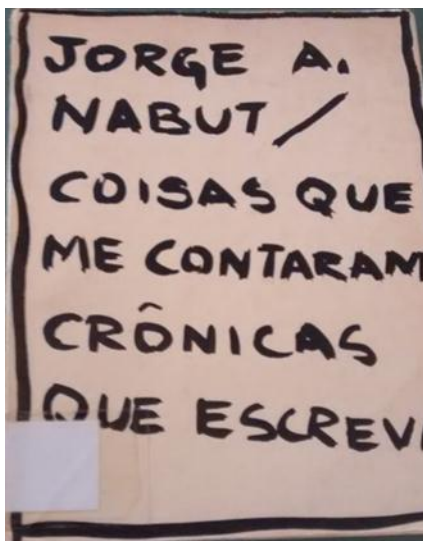 JORGE A.
NABUT /
COISAS QUE
ME CONTARAM
CRÔNICAS
QUE ESCREVI